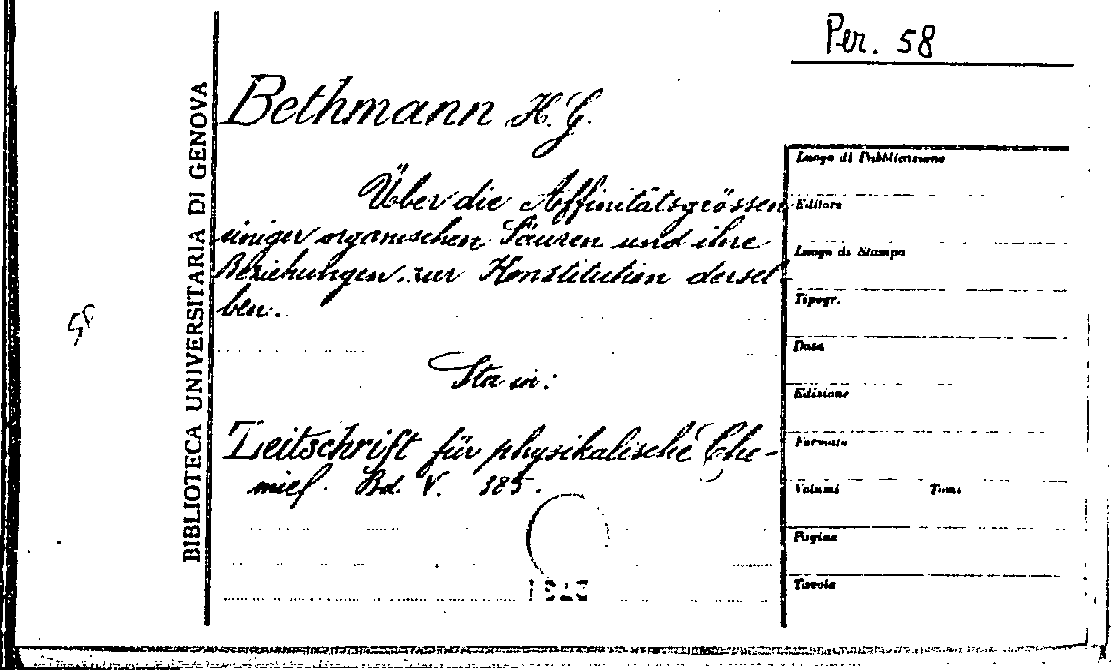 Per. 58
BIBLIOTECA UNIVERSITARIA DI GENOVA
Bethmann H. G.
Über die Affinitätsgrössen
einiger organischen Säuren und ihre
Beziehungen zur Konstitution dersel-
ben.
Sta in:
Zeitschrift für physikalische Che-
mie. Bd. V. 385.
Luogo di Pubblicazione
Editore
Luogo di Stampa
Tipogr.
Data
Edizione
Formato
Volumi Tomi
Pagine
Tavole
58